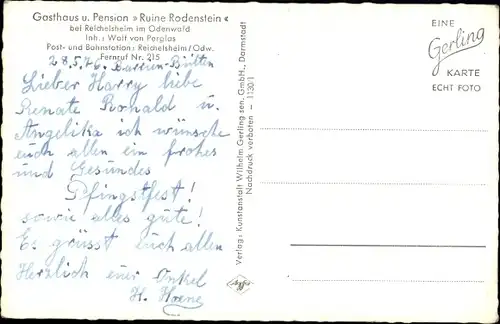 Gasthaus u. Pension »Ruine Rodenstein«
bei Reichelsheim im Odenwald
Inh.: Wolf von Perglas
Post- und Bahnstation: Reichelsheim/Odw.
Fernruf Nr. 215
28.5.76.
Lieber Harry liebe
Renate Ronald u.
Angelika ich wünsche
euch allen ein frohes
und Gesundes
Pfingstfest!
sowie alles gute!
Es grüsst euch allen
Herzlich euer Onkel
H.
Verlag: Kunstanstalt Wilhelm Gerling sen. GmbH., Darmstadt
Nachdruck verboten 11301
EINE
Gerling
KARTE
ECHT FOTO
Agfa